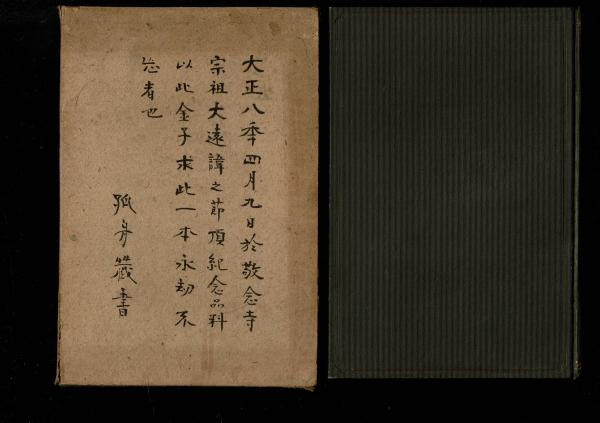 大正八季四月九日於敬念寺
宗祖大遠諱之節頂紀念品料
以此金子求此一本永劫不
忘者也
孤舟藏書